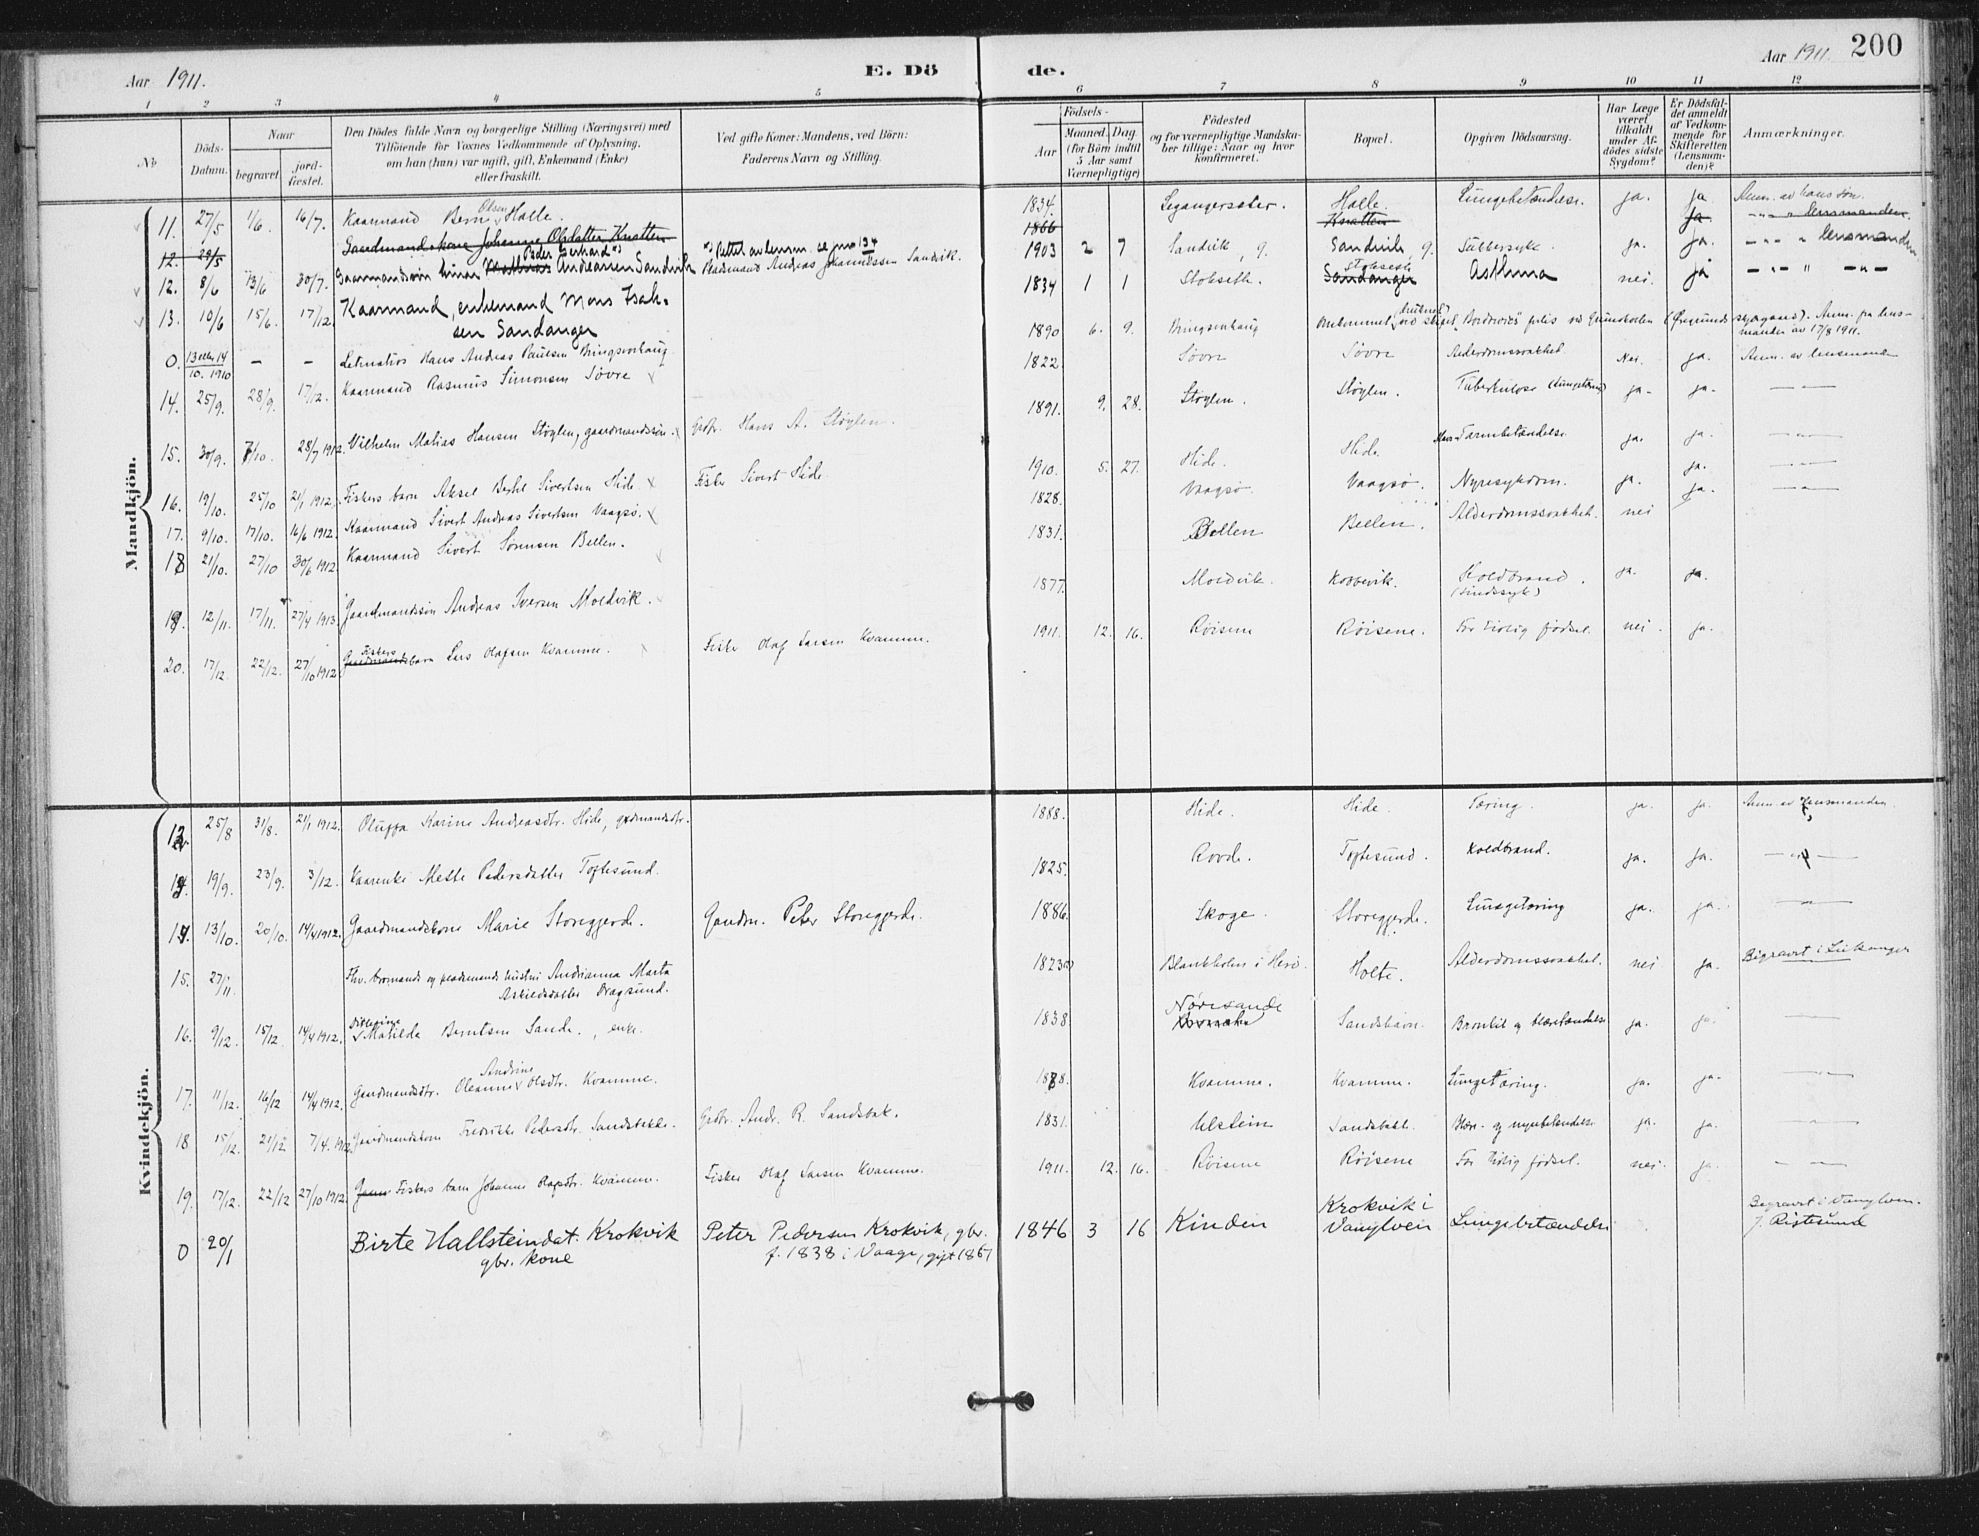 Aar 1911. E. Dö de. Aar 1911. 200
1 2 3 4 5 6 7 8 9 10 11 12
№
Döds-Datum.
Naar
begravet
jord-fæstet.
Den Dödes fulde Navn og borgerlige Stilling (Næringsvei) med
Tilföiende för Voxnes Vedkommende af Oplysning,
om han (hun) var ugift, gift, Enkemand (Enke)
eller fraskilt.
Ved gifte Koner: Mandens, ved Börn:
Faderens Navn og Stilling.
Födsels-
Aar
Maaned. Dag.
(for Börn indtil
5 Aar samt
Værnepligtige)
Födested
og for værnepligtige Mandska-
ber tillige: Naar og hvor
konfirmeret.
Bopæl.
Opgiven Dödsaarsag.
Har Læge
været
tilkaldt
under Af-
dödes sidste
Sygdom?
Er Dödsfal-
det anmeldt
af Vedkom-
mende for
Skifteretten
(Lensman-
den)?
Anmærkninger.
Mandkjön.
11. 27/5 1/6 16/7. Kaarmand Bernt Olsen Halle. 1834. Legangersæter. Halle. Lungebetændelse. ja. ja Anm. av hans søn.
12. 29/5 Gaardmandskone Johanne Olsdatter Knatten 1866 Knatten ja. " lensmanden.
12. 8/6 13/6 30/7. Gaarmandssøn Einar Mathias Peder Gerhard Andreassen Sandvik Gaardmand Andreas Johannessen Sandvik. 1903 2 7 Sandvik, g. Sandvik, g. Sukkersyke ja. ja. " lensmanden
13. 10/6 15/6. 17/12. Kaarmand, enkemand Mons Isak-
sen Sandanger 1834 1 1 Stokseth. Sandanger Stokseth Asthma nei. ja
0. 13 eller 14/10. 1910 – – Letmatros Hans Andreas Paulsen Bringsvorhaug 1890 6. 9. Bringsvorhaug
manden av 17/8 1911.
14. 25/9. 28/9. 17/12. Kaarmand Rasmus Simonsen Søvre 1822. Søvre Søvre Alderdomssvakhet Nei. ja. Anm. av lensmanden
15. 30/9. 7/10. 28/7 1912. Vilhelm Matias Hansen Støylen, gaardmandssøn. Grdbr. Hans A. Støylen. 1891. 9. 28. Støylen. Støylen. Tuberkulose (Lungetæring) ja. ja.
16. 19/10. 25/10 21/1 1912. Fiskers barn Aksel Bertil Sivertsen Hide Fisker Sivert Hide 1910. 5. 27. Hide. Hide. Tarmbetændelse ja. ja.
17. 9/10. 17/10. 16/6 1912. Kaarmand Sivert Andreas Sivertsen Vaagsø. 1828. Vaagsø. Vaagsø. Nyresykdom. ja. ja.
18 21/10. 27/10 30/6 1912 Kaarmand Sivert Sørensen Bellen. 1831. Bellen Bellen. Alderdomssvakhet. nei ja.
19. 12/11. 17/11. 27/4 1913. Gaardmandssøn Andreas Iversen Moldvik. 1877. Moldvik. Kobbevik. Koldbrand. (Sindssyk) ja. ja.
20. 17/12. 22/12. 27/10 1912 Gaardmandsbarn Fiskers Lars Olafsen Kvamme. Fisker Olaf Larsen Kvamme. 1911. 12. 16. Röisene Röisene. For tidlig födsel. nei. ja.
Kvindekjön.
12. 25/8 31/8. 21/1 1912. Oluffa Karine Andreasdtr. Hide, grdmandsdtr. 1888. Hide. Hide. Tæring. ja. ja. Anm. av lensmanden
13. 19/9. 23/9. 3/12. Kaarenke Mette Pedersdatter Toftesund. 1825. Rovde. Toftesund. Koldbrand. ja. ja.
14. 13/10. 20/10. 14/4 1912. Gaardmandskone Marie Storegjerde. Gaardm. Peter Storegjerde. 1886. Skoge. Storegjerde. Lungetæring ja. ja.
15. 27/11. Fhv. og gaardmands hustru Andrianna Marta
Askildsdatter Dragsund. 1823 Blankholm i Herö. Holte. Alderdomssvakhet. nei ja. Begravet i Leikanger
16. 9/12. 15/12. 14/4 1912. Matilda Berntsen Sande, enke. 1838. Nøresande Sandshavn. Bronkit og blærebetændelse ja. ja.
17. 11/12. 16/12 14/4 1912. Gaardmandsdtr. Oleanne Andrine Olsdtr. Kvamme. 1878. Kvamme. Kvamme. Lungetæring. ja. ja.
18 15/12. 21/12 7/4. 1912 Gaardmandskone Fredrikke Pedersdtr. Sandsbakk. Grdbr. Andr. R. Sandsbak. 1831. Ulstein Sandsbakk. Blære- og nyrebetændelse ja. ja.
19. 17/12. 22/12 27/10 1912. Fiskers barn Johanne Olafsdtr. Kvamme. Fisker Olaf Larsen Kvamme. 1911. 12. 16. Röisene Röisene For tidlig födsel. nei. ja.
0 20/1 Birte Hallsteindat. Krokvik
gbr. kone Peter Pedersen Krokvik, gbr.
f. 1838 i Vaage, gift 1867 1846 3 16 Kinden Krokvik i
Vanylven Lungebetændelse Begravet i Vanylven.